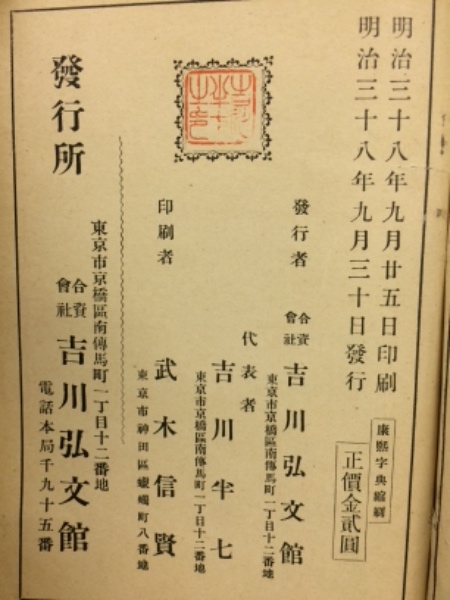 明治三十八年九月廿五日印刷
明治三十八年九月三十日發行
康熙字典縮刷
正價金貳圓
發行者
合資會社
吉川弘文館
東京市京橋區南傳馬町一丁目十二番地
代表者
吉川半七
東京市京橋區南傳馬町一丁目十二番地
印刷者
武木信賢
東京市神田區蠟燭町八番地
發行所
東京市京橋區南傳馬町一丁目十二番地
合資會社
吉川弘文館
電話本局千九十五番